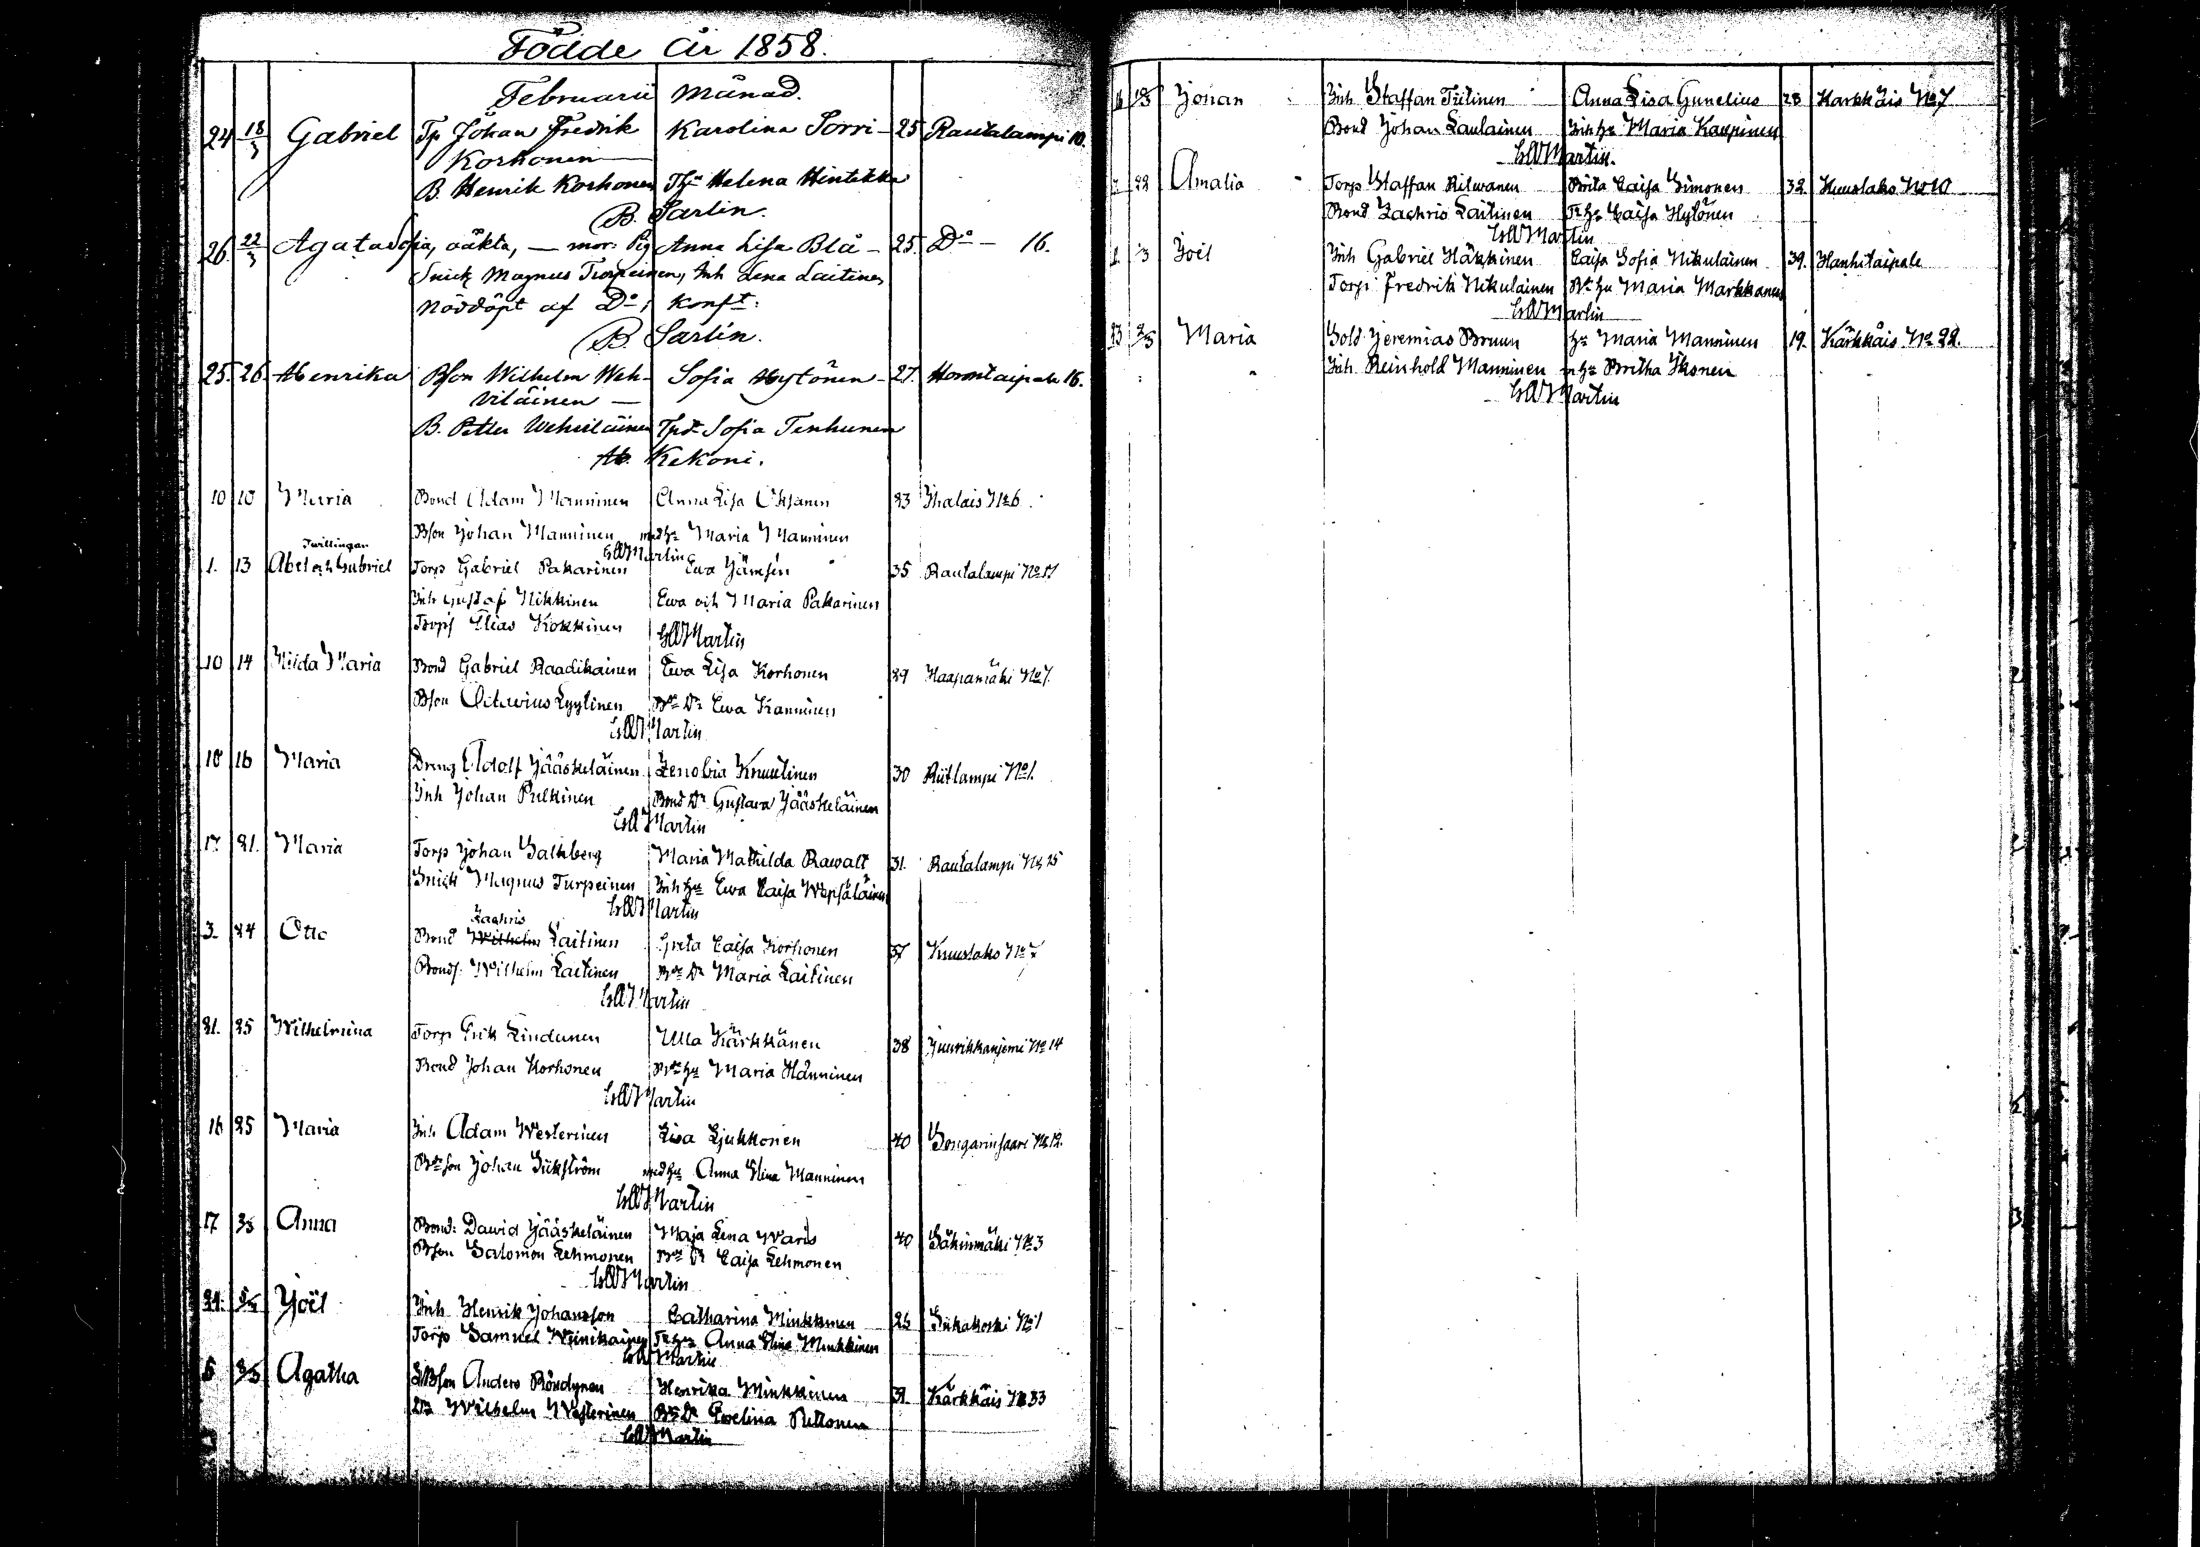 Födde År 1858.
Februarii Månad.
24 18/3 Gabriel Tp Johan Fredrik Karolina Torri - 25 Rautalampi 10.
Korhonen
B. Henrik Korhonen Helena Hintikka
B. Sarlin.
26. 22/3 Agata Sofia, oäkta, - mor: Pig Anna Lisa Blå - 25. Do - 16.
Snick Magnus Turpeinen, Inh Lena Laitinen
Nöddöpt af Do; Konft:
B. Sarlin.
25. 26 Henrika Bson Wilhelm Weh- Sofia Hytönen - 27. 16.
viläinen -
B. Petter Wehviläinen Sofia Tenhunen
Ab. Kekoni.
10 10 Maria Bond Adam Manninen Anna Lisa Oksanen 23 No 6
Bson Johan Manninen med hu Maria Manninen
Twillingar Martin
1. 13 Abel och Gabriel Torp Gabriel Pakarinen Ewa Jämsén 35 Rautalampi
Inh Gustaf Nikkinen Ewa och Maria Pakarinen
Elias Kokkinen Martin
10 14 Hilda Maria Bond Gabriel Raadikainen Ewa Lisa Korhonen 29 Haapamäki No 7.
Bson Octavius Lyytinen Ewa Kanninen
Martin
10 16 Maria Dreng Adolf Jääskeläinen Zenobia Knuutinen 30 Riitlampi No 1.
Inh Johan Pulkinen Bond Dr Gustava Jääskeläinen
Martin
17. 21. Maria Torp Johan Salhberg Maria Mathilda Rawalt 31. Rautalampi No 25
Snick Magnus Turpeinen Inh hu Ewa Caisa Wepsäläinen
Martin
Zachris
3. 24 Otto Bond Wilhelm Laitinen Greta Caisa Korhonen 37 Kuuslaks No 7
Bonds: Wilhelm Laitinen Maria Laitinen
Martin
21. 25 Wilhelmina Torp Erik Lindeman Ulla Kärkkänen 38 No 14
Bond Johan Korhonen hu Maria Hänninen
Martin
16 25 Maria Inh Adam Westerinen Lisa Ljukkonen 40 Songarinsaari No 12.
son Johan Sikström med hu Anna Elina Manninen
Martin
17 Anna Bond: David Jääskeläinen Maja Lena Waris 40 Säkinmäki No 3
Bson Salomon Lehmonen Caisa Lehmonen
Martin
24. Joël Inh Henrik Johansson Catharina Minkkinen 26 Siikakoski No 1
Torp Samuel Weinikainen Anna Elina Minkkinen
Martin
5 Agatha Anders Röndynen Henrika Minkkinen 31. Kärkkäis No 33
Wilhelm Westerinen Ewelina Puttonen
Martin
16 Johan Inh Staffan Tiitinen Anna Lisa Gunelius 28 Karkkäis No 7
Bond Johan Laulainen Inh hu Maria Kaupinen
Martin.
22 Amalia Torp Staffan Rilwanen Brita Caisa Simonen 32. Kuuslaks No 10
Bond Zachris Laitinen hu Caisa Hytönen
Martin
1. 3 Joël Inh Gabriel Häkkinen Caisa Sofia Nikulainen 39. Hanhitaipale
Torp Fredrik Nikulainen hu Maria Markkanen
Martin
23 Maria Sold Jeremias Bruun hu Maria Manninen 19. Kärkkäis No 22.
Inh Reinhold Manninen m hu Britha Ikonen
Martin